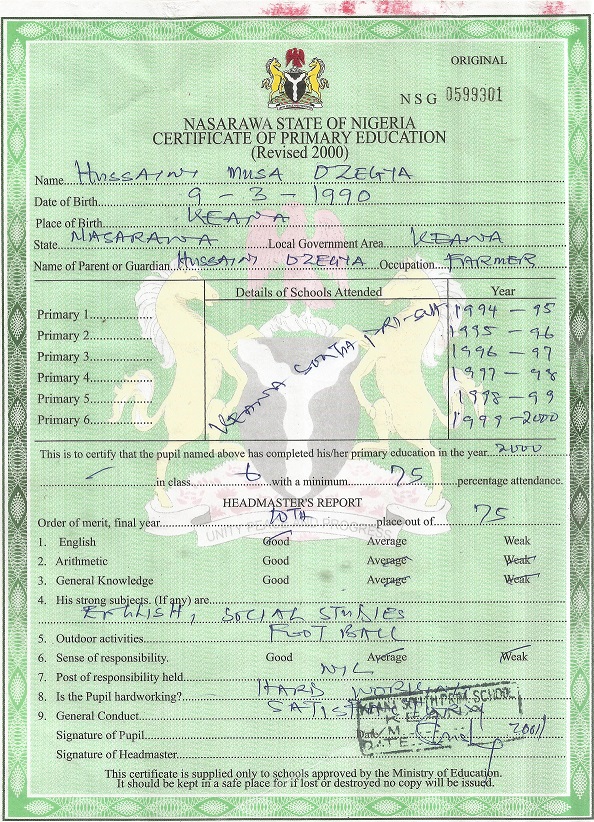 ORIGINAL
NSG 0599301
NASARAWA STATE OF NIGERIA
CERTIFICATE OF PRIMARY EDUCATION
(Revised 2000)
Name HUSSAINI MUSA DZEGYA
Date of Birth 9 - 3 - 1990
Place of Birth KEANA
State NASARAWA Local Government Area KEANA
Name of Parent or Guardian HUSSAINI DZEGYA Occupation FARMER
Details of Schools Attended Year
Primary 1 1994 - 95
Primary 2 1995 - 96
Primary 3 1996 - 97
Primary 4 1997 - 98
Primary 5 1998 - 99
Primary 6 1999 - 2000
KEANA SOUTH PRI - SCH
This is to certify that the pupil named above has completed his/her primary education in the year 2000
in class 6 with a minimum 75 percentage attendance.
HEADMASTER'S REPORT
Order of merit, final year 10TH place out of 75
1. English Good Average Weak
2. Arithmetic Good Average Weak
3. General Knowledge Good Average Weak
4. His strong subjects. (If any) are
ENGLISH, SOCIAL STUDIES
5. Outdoor activities FOOT BALL
6. Sense of responsibility. Good Average Weak
7. Post of responsibility held NIL
8. Is the Pupil hardworking? HARD
9. General Conduct
KEANA SOUTH PRIM. SCHOOL
KEANA
Signature of Pupil Date 2001
DATE
Signature of Headmaster
This certificate is supplied only to schools approved by the Ministry of Education.
It should be kept in a safe place for if lost or destroyed no copy will be issued.
UNITY